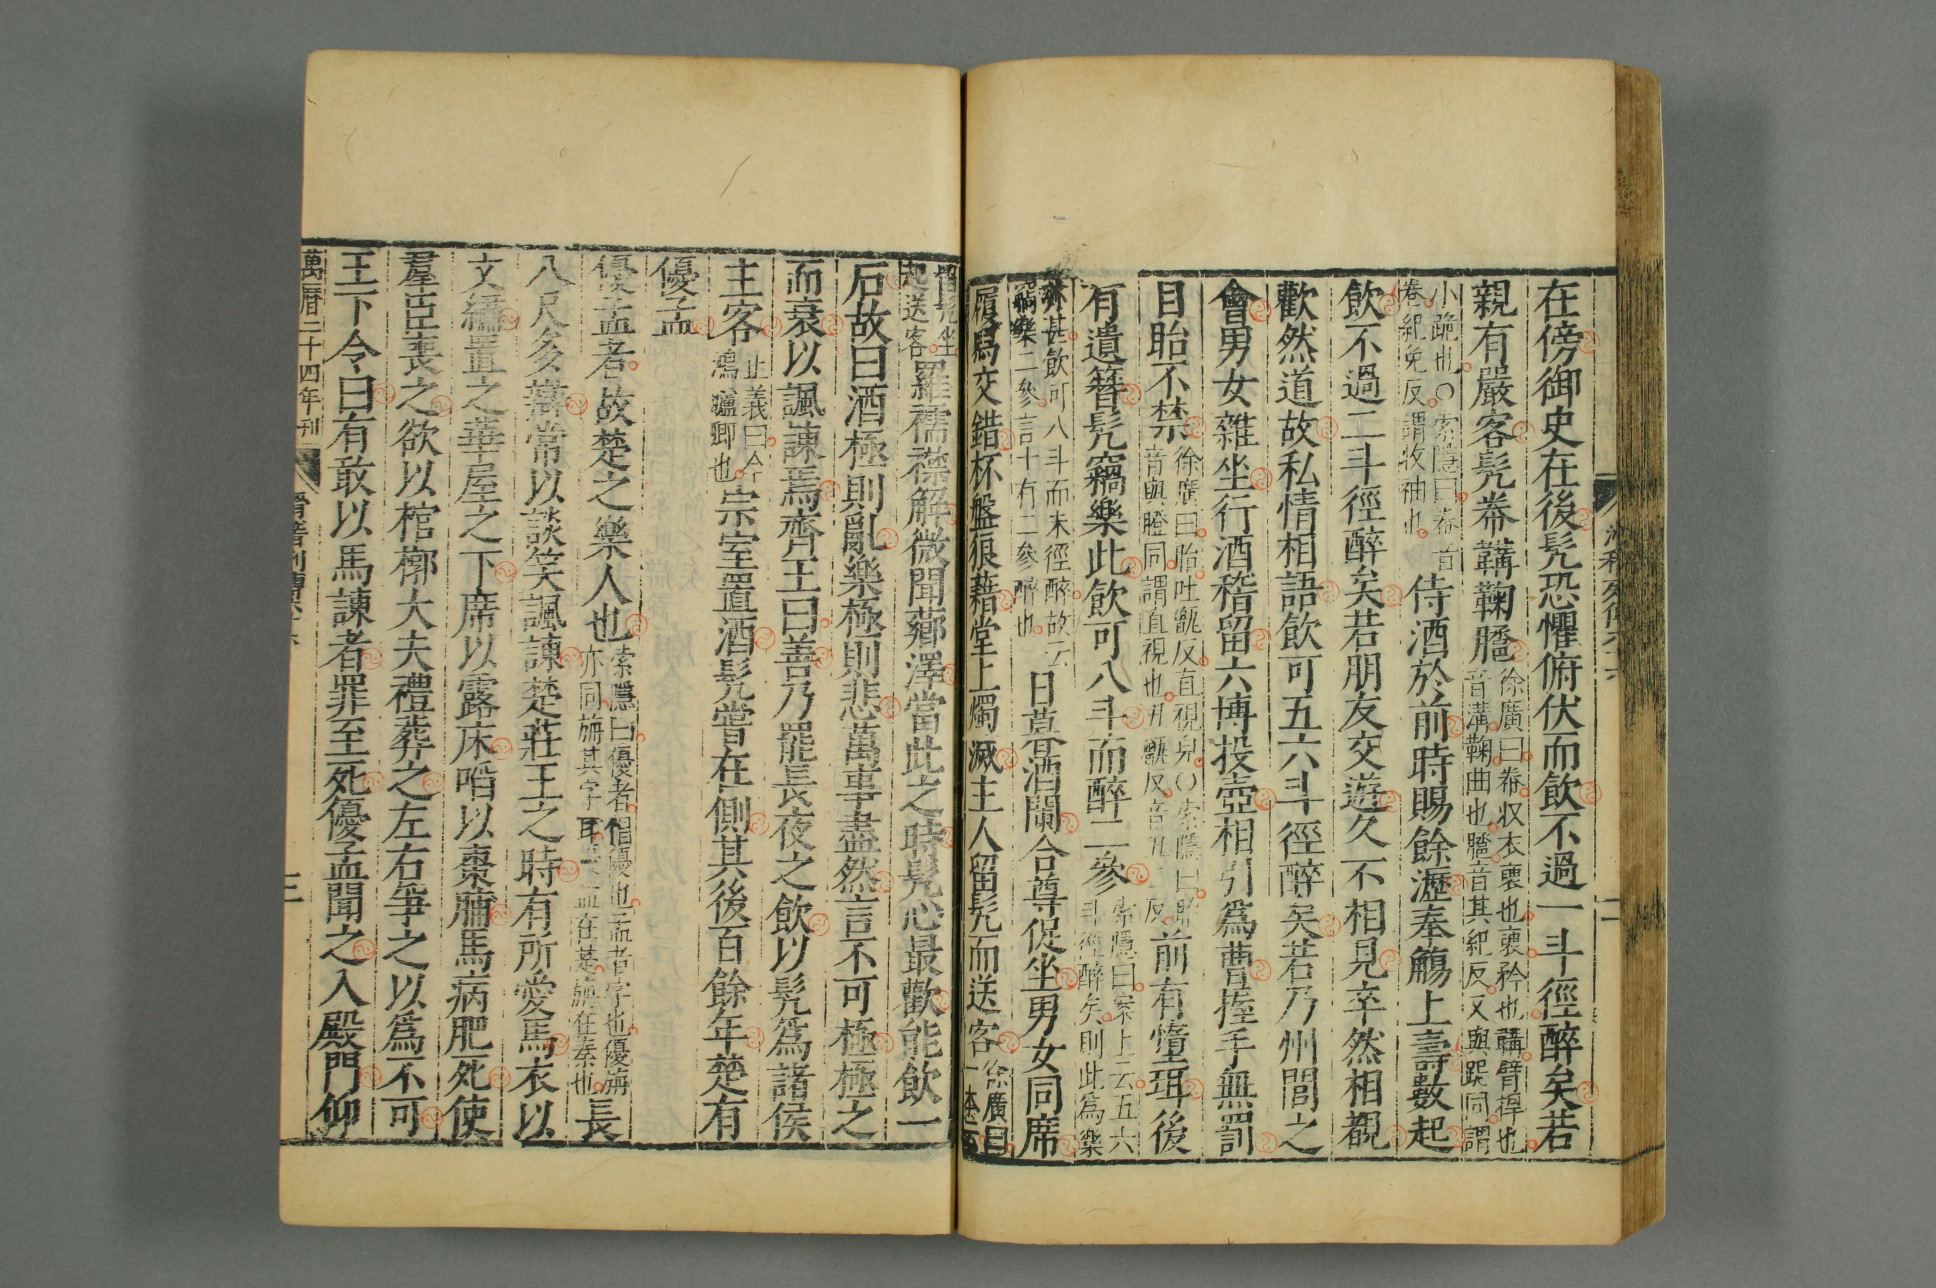 在傍御史在後髡恐懼俯伏而飲不過一斗徑醉矣若
親有嚴客髡帣韝鞠𦜕徐廣曰帣収衣褏也褏袊也韝臂捍也音溝鞠曲也𦜕音其紀反又與跽同謂
小跪也○索隱曰帣音卷紀免反謂收袖也侍酒於前時賜餘瀝奉觴上壽數起
飲不過二斗徑醉矣若朋友交遊久不相見卒然相覩
歡然道故私情相語飲可五六斗徑醉矣若乃州閭之
會男女雜坐行酒稽留六博投壺相引爲曹握手無罰
目眙不禁徐廣曰眙吐甑反直視皃○索隱曰眙音與瞪同謂直視也丑甑反前有墮珥後
有遺簪髡竊樂此飲可八斗而醉二參索隱曰案上云五六斗徑醉矣則此爲樂
亦甚飲可八斗而未徑醉故云竊樂二參言十有二參醉也日暮酒闌合尊促坐男女同席
履舄交錯杯盤狼藉堂上燭滅主人留髡而送客徐廣曰一本云
留髡坐起送客羅襦襟解微聞薌澤當此之時髡心最歡能飲一
石故曰酒極則亂樂極則悲萬事盡然言不可極極之
而衰以諷諫焉齊王曰善乃罷長夜之飲以髡爲諸侯
主客正義曰今鴻臚卿也宗室置酒髡嘗在側其後百餘年楚有
優孟
優孟者故楚之樂人也索隱曰優者倡優也孟者字也優旃亦同旃其字耳孟在楚旃在秦也長
八尺多辯常以談笑諷諫楚莊王之時有所愛馬衣以
文繡置之華屋之下席以露床啗以棗脯馬病肥死使
羣臣喪之欲以棺槨大夫禮葬之左右爭之以爲不可
王下令曰有敢以馬諫者罪至死優孟聞之入殿門仰
萬曆二十四年刊
三